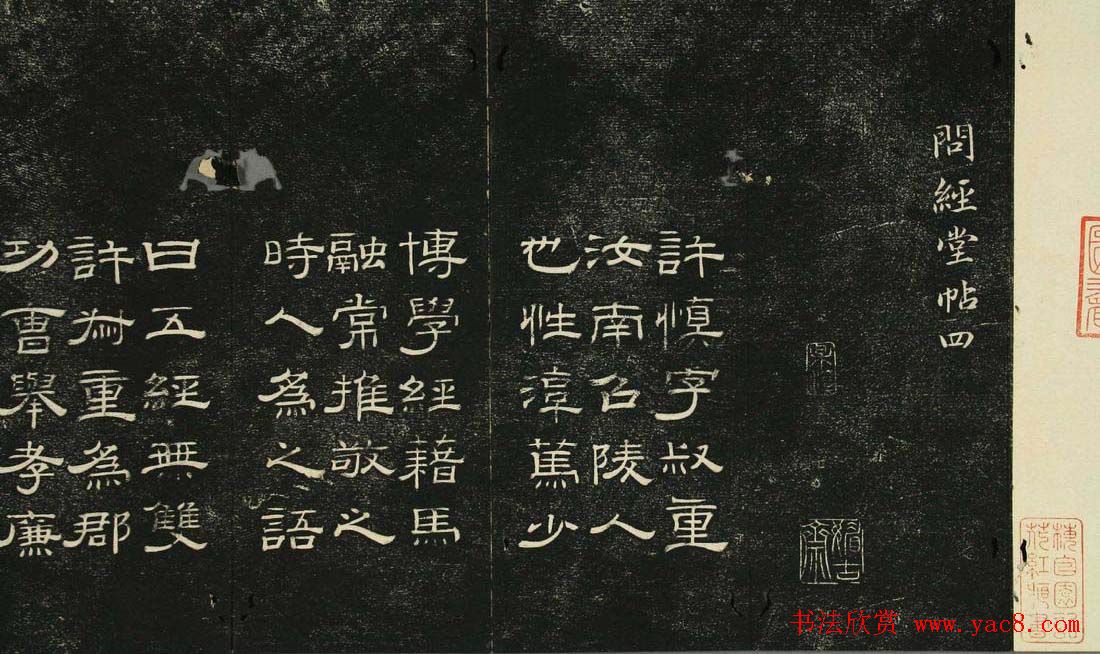 問經堂帖四
許慎字叔重
汝南召陵人
也性淳篤少
博學經藉馬
融常推敬之
時人爲之語
曰五經無雙
許叔重爲郡
功曹舉孝廉
书法欣赏 www.yac8.com